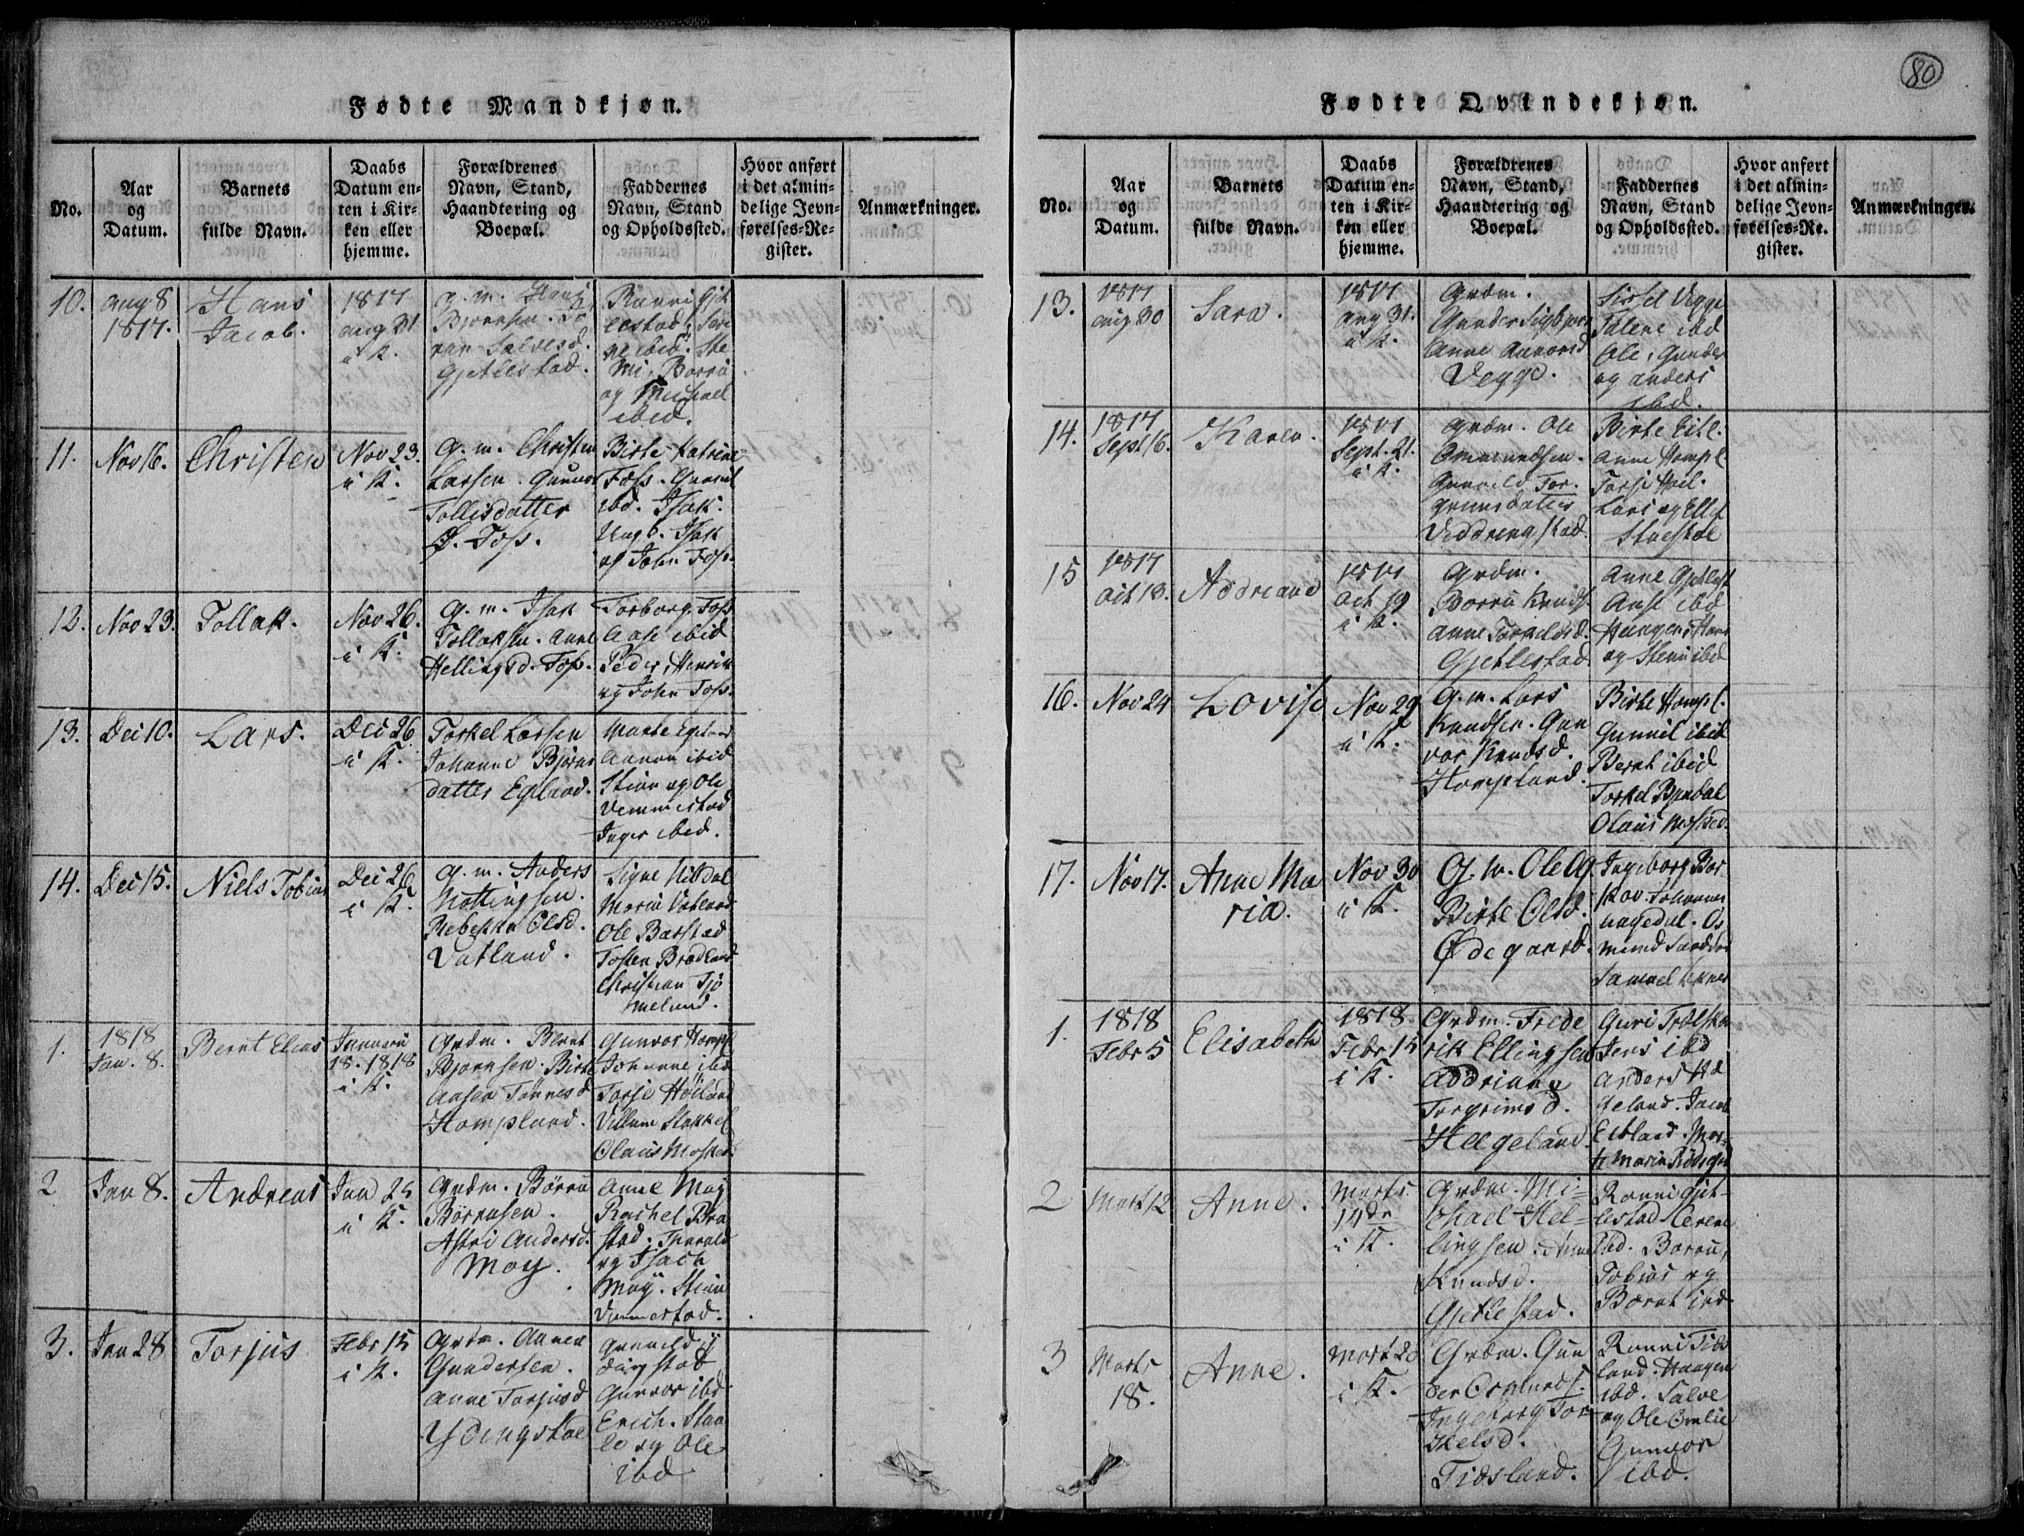 80
Fødte Mandkjøn.
No.
Aar
og
Datum.
Barnets
fulde Navn.
Daabs
Datum en-
ten i Kir-
ken eller
hjemme.
Forældrenes
Navn, Stand,
Haandtering og
Boepæl.
Faddernes
Navn, Stand
og Opholdssted.
Hvor anført
i det almin-
delige Jevn-
førelses-Re-
gister.
Anmærkninger.
10.
Aug 8
1817.
Hans
Jacob.
1817
Aug 31
i K.
G. m. Hans
Bjørnsen
Salvesd.
Gjetlestad.
Ranni Gjet
lestad
ibid. Ste
Børru
og Michael
ibid.
11.
Nov 16.
Christen
Nov 23.
i K.
G. m. Christen
Larsen. Gunvor
Tollisdatter
Foss.
Birte Katrine
Foss. Gunnil
ibd. Isak
Isak
og John Foss.
12.
Nov 23.
Tollak.
Nov 26.
i K.
G. m. Isak
Tollaksen. Anne
Hellingsd. Foss.
Torborg Foss
Aase ibid
Peder, Henrik
og John Foss.
13.
Dec 10.
Lars.
Dec 26
i K.
Torkel Larsen
Johanne Bjørns
datter Egeland.
Marte Egeland
Aanon ibid
Stian og Ole
Vemmestad
Inger ibid.
14.
Dec 15.
Niels Tobias
Dec 26
i K.
G. m. Anders
Nottingsen.
Rebekka Olsd.
Vatland.
Signe
Maria Vatland
Ole Barstad
Tosten Brædland
Christian Tjo
meland.
1.
1818
Jan. 8.
Bernt Elias
Januari
18. 1818
i K.
Grdm. Bernt
Bjørnsen. Birte
Aasea Tønnesd
Hompland.
Gunvor Hompl
Johanne ibd
Torje Høiland
Villum Stakkel
Olaus Mosked.
2
Jan 8.
Andreas
Jan 25
i K.
Grdm. Børru
Børrusen.
Astri Andersd.
Moy.
Anne Moy
Rachel Bra
stad. Tharald
og Isach
Moy. Stian
Vemmestad.
3.
Jan 28
Torjus
Febr 15
i K.
Grdm. Aanen
Gundersen.
Anne Torjusd
Ydingstad
Gunnild y
dingstad
Gunvor ibd
Erich. Staa
le og Ole
ibd
Fødte Qvindekjøn.
No.
Aar
og
Datum.
Barnets
fulde Navn.
Daabs
Datum en-
ten i Kir-
ken eller
hjemme.
Forældrenes
Navn, Stand,
Haandtering og
Boepæl.
Faddernes
Navn, Stand
og Opholdssted.
Hvor anført
i det almin-
delige Jevn-
førelses-Re-
gister.
Anmærkninger.
13.
1817
Aug 30
Sara.
1817
Aug 31.
i K.
Grdm.
Gunder Sigbjørn
Anne Aanonsd
Vegge.
Sissel Vegge
Talene ibd
Ole, Gunder
og Anders
ibd.
14.
1817
Sept 16.
Karen.
1817
Sept. 21.
i K.
Grdm. Ole
Ommundsen.
Gunnild Tor-
grimsdatter
Viddringstad.
Birte Eitl.
Anne Hompl.
Torje
Lars og Ellef
Stuestøl
15
1817
Oct 13.
Addriane
1817
Oct 19
i K.
Grdm.
Børru Knuds.
Anne Torkelsd.
Gjetlestad
Anne Gjetlest
Aase ibd
Haagen, Hans
og Steni ibd
16.
Nov 24
Lovise
Nov 29
i K.
G. m. Lars
Knudsen. Gun
vor Knudsd.
Hompland.
Birte Hompl.
Gunnil ibid
Bernt ibid
Torkel
Olaus Mosked.
17.
Nov 17.
Anne Ma
ria.
Nov 30
i K.
G. m. Ole
Birte Olsd.
Ødegaard.
Ingeborg Bir
kov. Johannes
Hægedal. Os
mund
Samuel
1.
1818
Febr 5
Elisabeth
1818
Febr 15
i K.
Grdm. Frede
rik Ellingsen
Addriane
Torgrimsd.
Hægeland.
Guri
Jens ibd
Anders Hæ
geland. Jacob
Eitland. Mar-
te Marie
2
Mart 12
Anne.
Marts
14de
i K.
Grdm. Mi-
chael Hel-
lingsen. Anne
Knudsd.
Gjetlestad.
Ranni Gjet-
lestad
ibd. Børru,
Tobias og
Bærnt ibd
3
Marts
18.
Anne.
Mart 23
i K.
Grdm. Gun
der Osmunds.
Ingeborg Tor-
kelsd.
Tidsland.
Ranni Tids
land. Haagen
ibd. Salve
og Ole
Gunvor
ibd.